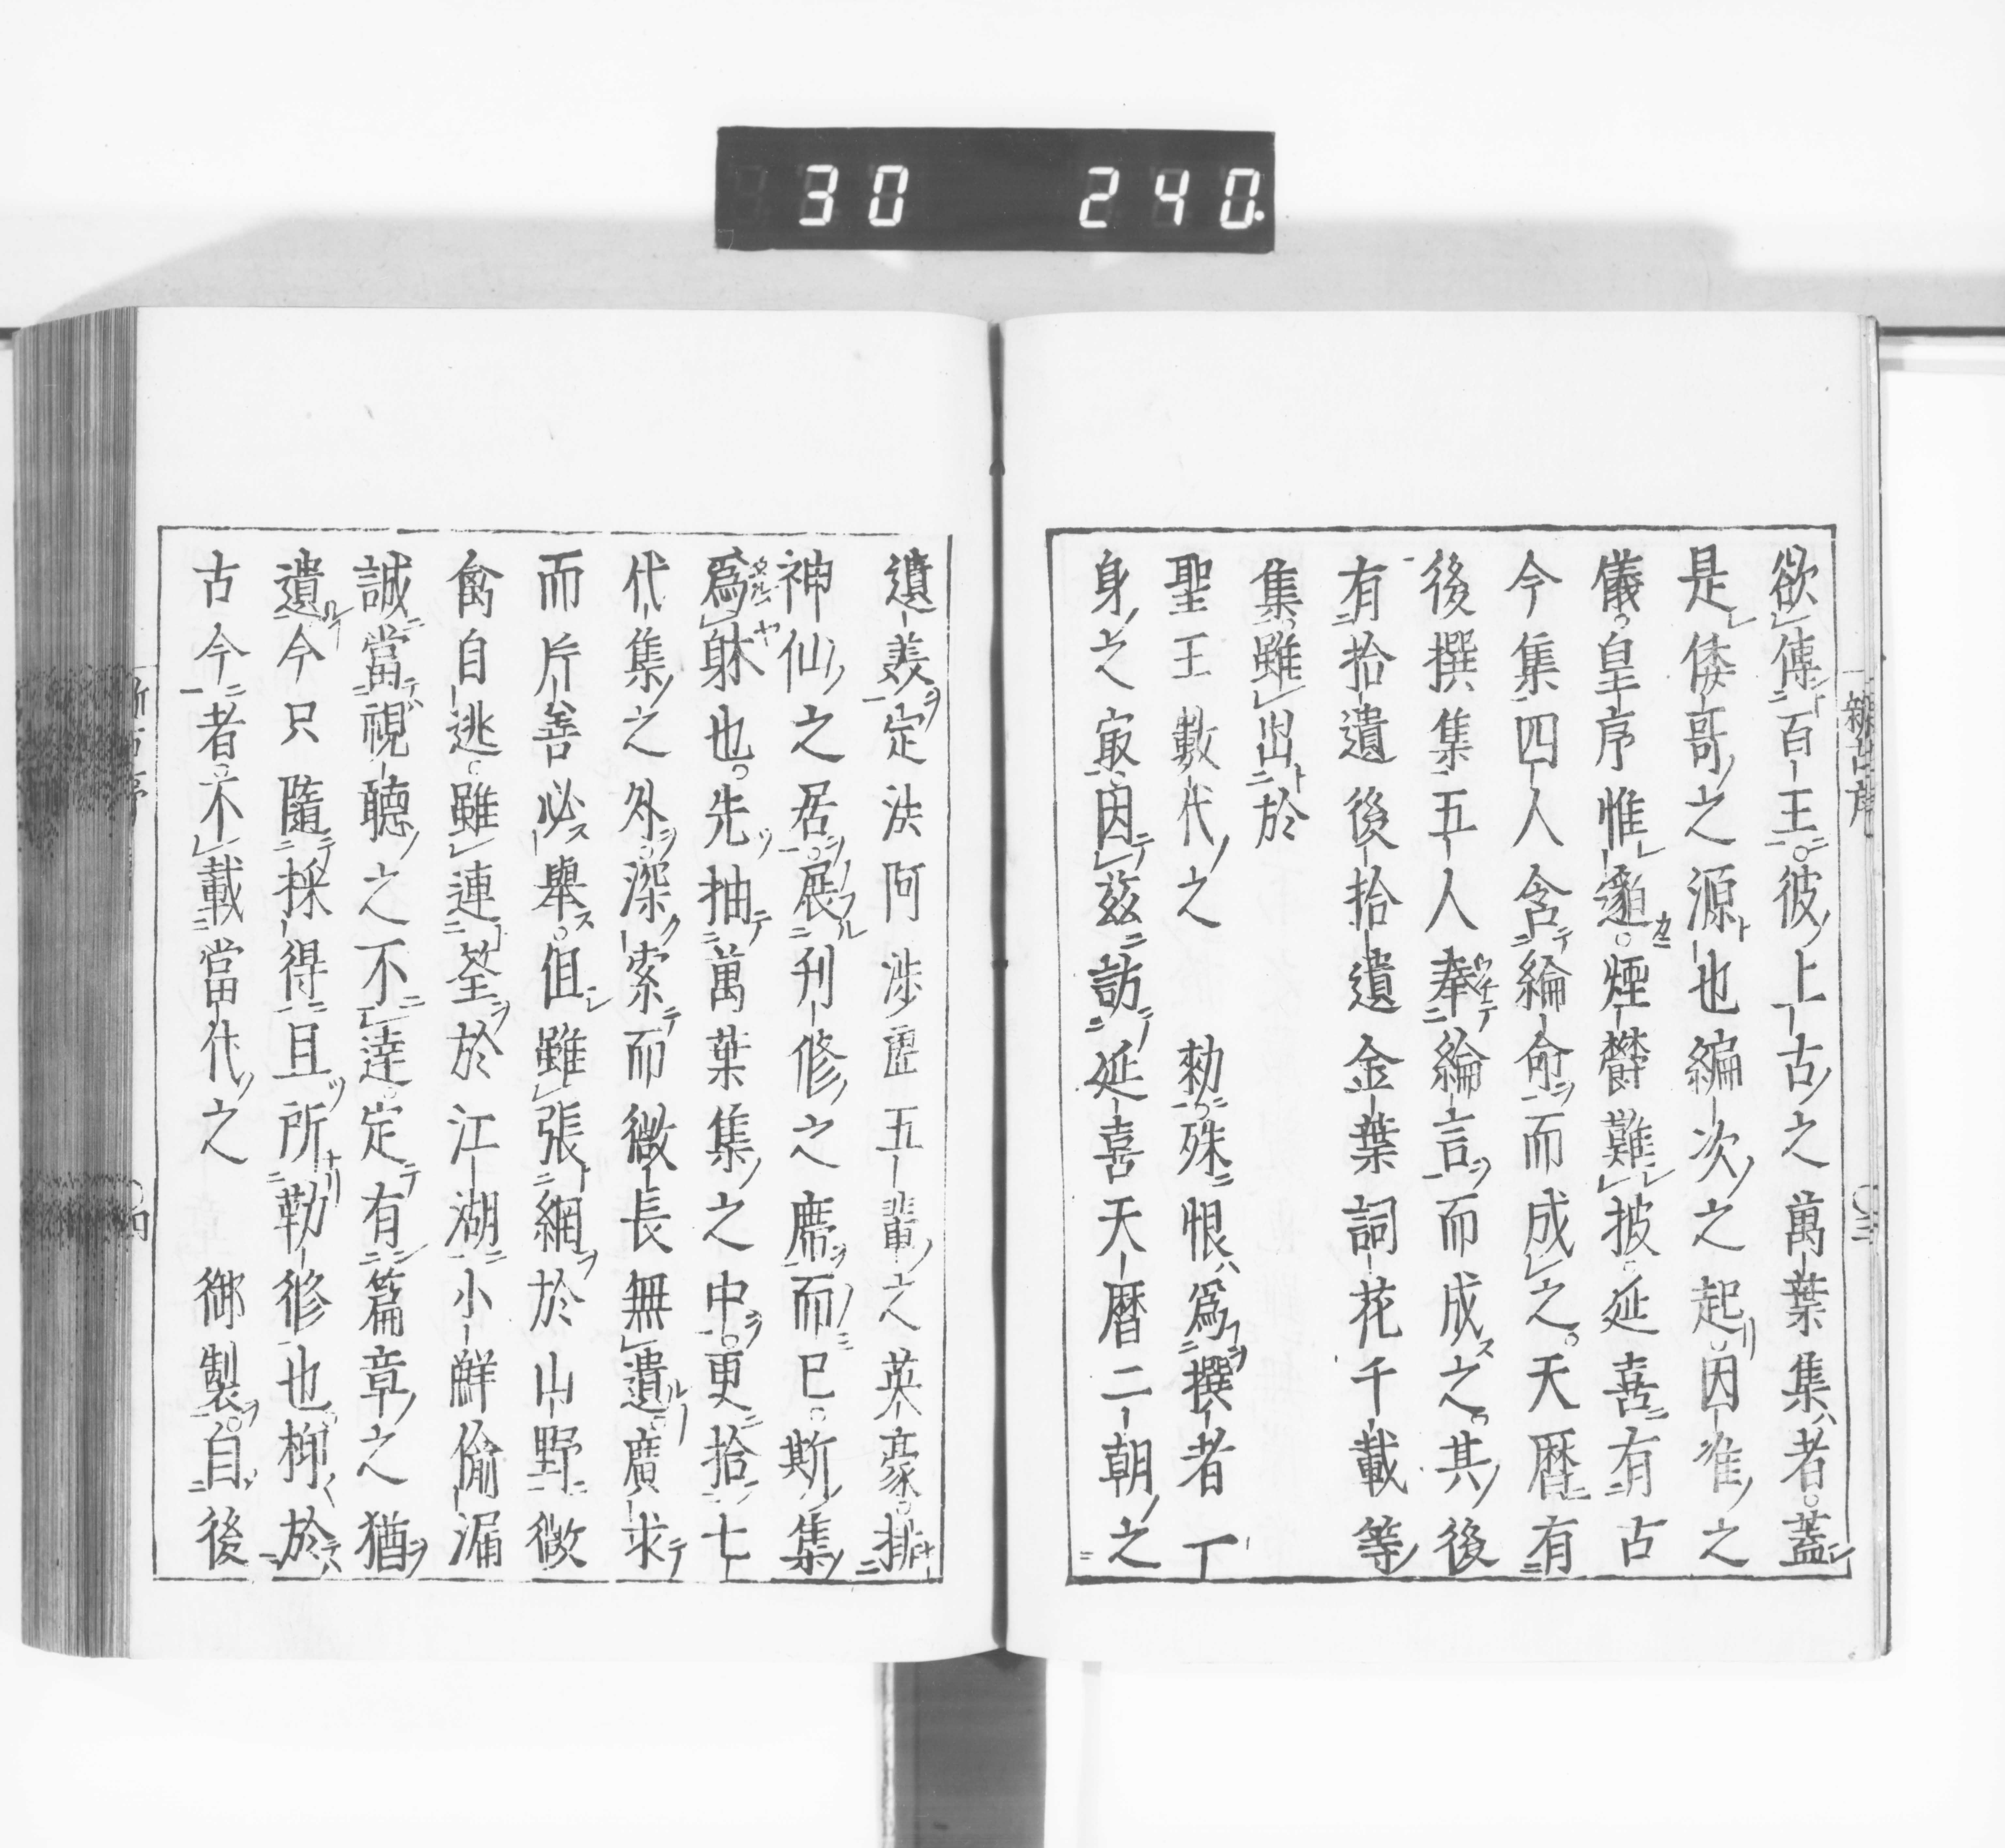 30 240.
欲傳百王彼上古之萬葉集者蓋
是倭哥之源也編次之起因准之
儀皇序惟邈煙欝難披延喜有古
今集四人含綸命而成之天暦有
後撰集五人奉綸言而成之其後
有拾遺後拾遺金葉詞花千載等
集雖出於
聖王數代之 勅殊恨爲撰者丁
身之冣因茲訪延喜天暦二朝之
遺美定法河涉虚五輩之英豪排
神仙之居展刊修之席而已斯集
爲躰也先抽萬葉集之中更拾七
代集之外深索而微長無遺廣求
而片善必擧但雖張網於山野微
禽自逃雖連筌於江湖小鮮偷漏
誠當視聽之不達定有篇章之猶
遺今只隨採得且所勒修也抑於
古今者不載當代之 御製自後